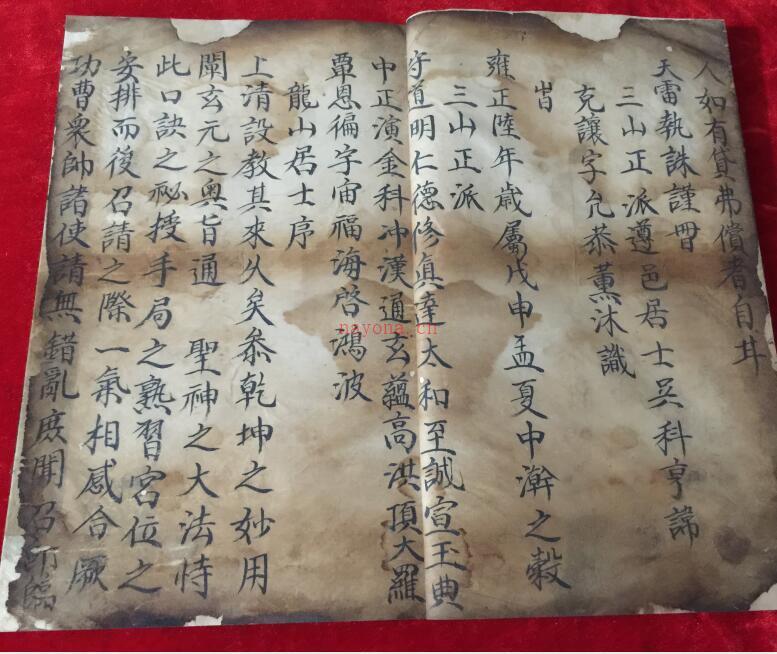 人如有貸弗償者自甘
天雷執誅謹冊
三山正派遵邑居士吳科亨諦
克讓字允恭薰沐識
旹
雍正陸年歲屬戊申孟夏中澣之穀
三山正派
守道明仁德修眞達太和至誠宣玉典
中正演金科冲漢通玄蘊高洪頂大羅
覃恩徧宇宙福海啓鴻波
龍山居士序
上清設教其來久矣叅乾坤之妙用
闡玄元之奥旨通 聖神之大法恃
此口訣之祕授手局之熟習宮位之
安排而後召請之際一氣相感合厥
功曹衆帥諸使請無錯亂庻開召
nayona.cn